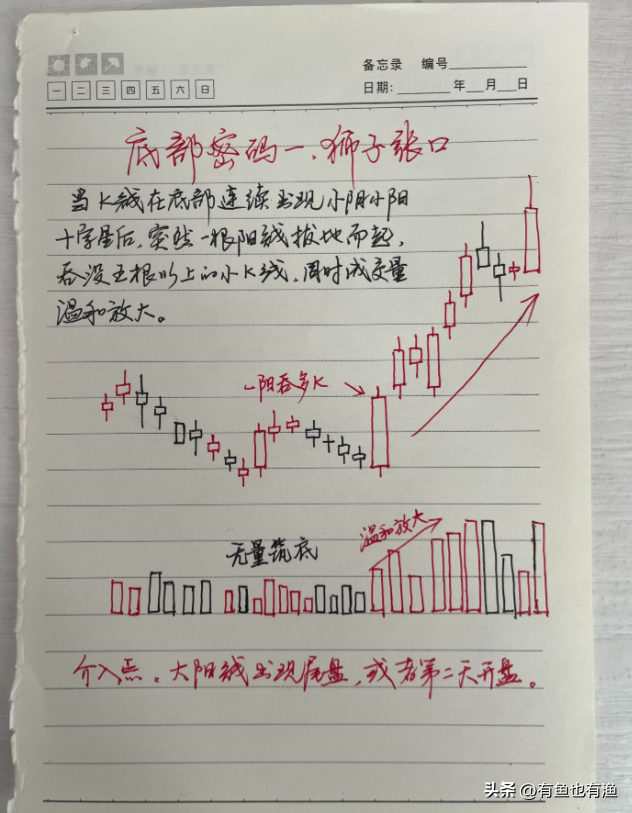 备忘录 编号
日期: 年 月 日
一 二 三 四 五 六 日
底部密码一、狮子张口
当K线在底部连续出现小阴小阳
十字星后,突然一根阳线拔地而起,
吞没五根以上的小K线,同时成交量
温和放大。
一阳吞多K
无量筑底
温和放大
介入点。大阳线出现尾盘,或者第二天开盘。
头条 @有鱼也有渔